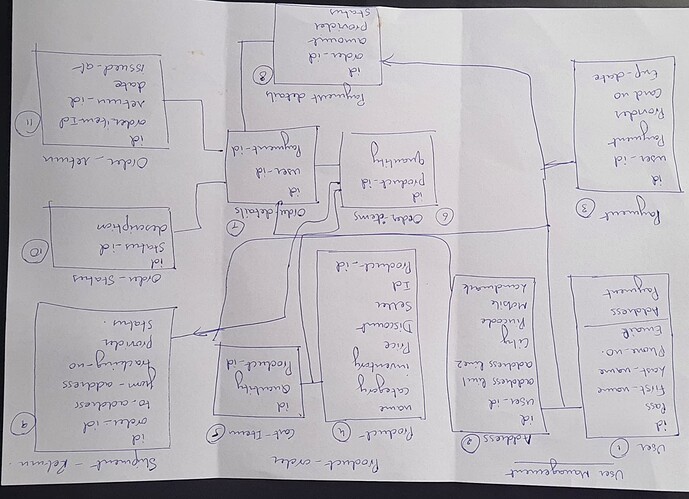 User Management
① User
id
Pass
First-name
Last-name
Phone.no.
Email
Address
Payment
② Address
id
user-id
address line1
address line2
City
Pincode
Mobile
Landmark
③ Payment
id
user-id
Payment
Provider
Card no
Exp-date
Product-order
④ Product-
name
category
inventory
Price
Discount
Seller
Id
Product_id
⑤ Cart-Item
id
Quantity
Product-id
⑥ Order items
id
product-id
quantity
⑦ Order-details
id
user-id
Payment-id
⑧ Payment details
id
order-id
amount
provider
status
⑨ Shipment - Return.
id
order-id
to-address
from-address
tracking-no
provider
Status.
⑩ Order-Status
id
Status-id
description
⑪ Order_return
id
order item Id
return-id
date
issued-at